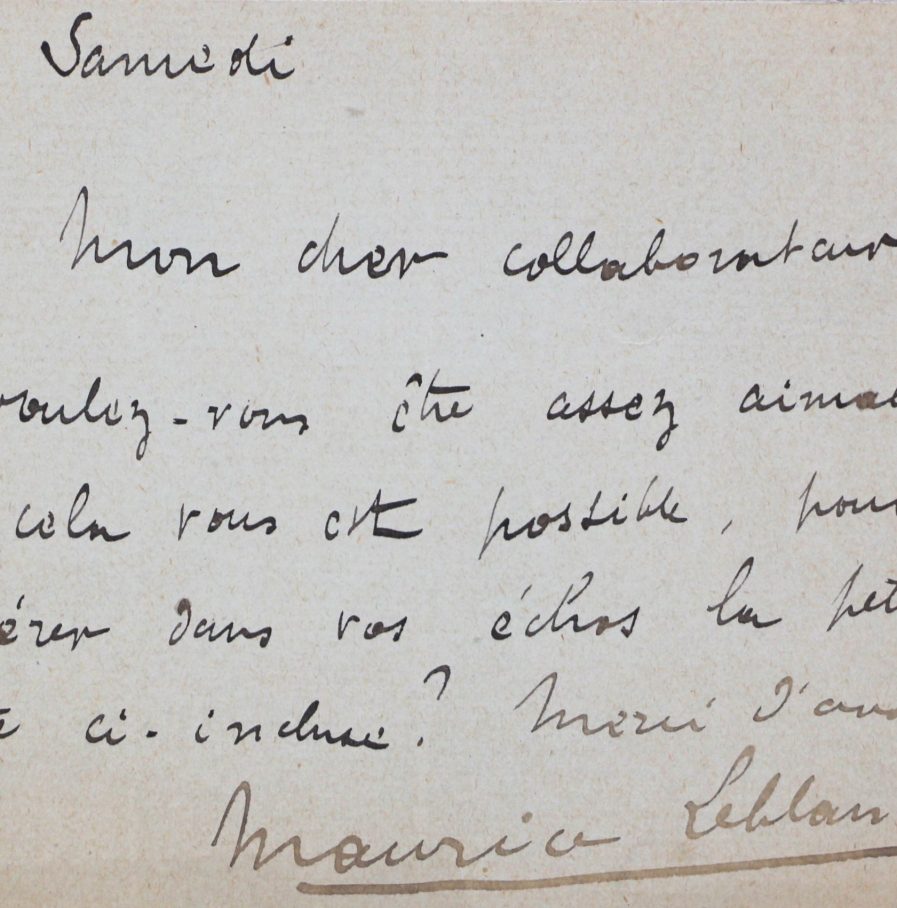 Samedi
Mon cher collaborateur
voulez-vous être assez aimab
cela vous est possible, pour
érer dans vos échos la pet
ci-incluse? Merci d'ava
Maurice Leblan